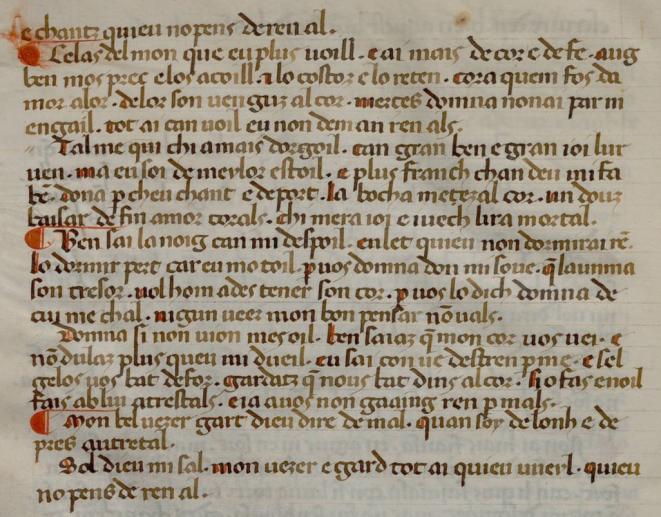 e chantz quieu no pens de ren al.
Celas del mon que eu plus uoill. e ai mais de cor e de fe. aug
ben mos prec e los acoill. a lo costor e lo reten. cora quem fos da
mor alor. delor son uenguz al cor. merces domna non ai par ni
engail. tot ai can uoil eu non deman ren als.
Tal me qui chi amais dorgoil. can gran ben e gran ioi lur
uen. ma eu soi de meylor estoil. e plus franch chan deu mi fa
bē. dona p cheu chant e deport. la bocha metez al cor. un douz
baisar de fin amor corals. chi mera ioi e iuech lira mortal.
Ben sai la noig can mi despoil. en let quieu non dormirai rē.
lo dormir pert car eu mo toil. p uos domna don mi soue. q̄ la unma
son tresor. uol hom ades tener son cor. p uos lo dich domna de
cui me chal. nigun ueer mon bon pensar nō uals.
Domna si non uion mes oil. ben saiaz q̄ mon cor uos uei. e
nō dulaz plus queu mi dueil. eu sai con ue destren p me. e sel
gelos uos bat de for. gardatz q̄ nous bat dins al cor. si o fas enoil
fais ab lui atrestals. e ia auos non gaaing ren p mals.
Mon bel uezer gart dieu dire de mal. quan soy de lonh e de
pres autretal.
Sol dieu mi sal. mon uezer e gard tot ai quieu uuerl. quieu
no pens de ren al.